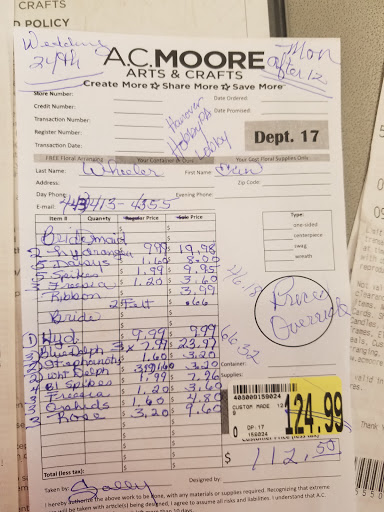 CRAFTS
POLICY
Wedding
24th
A.C.MOORE
ARTS & CRAFTS
Create More ☆ Share More ☆ Save More
Mon
after 12
Store Number:
Date Ordered:
Credit Number:
Date Promised:
Transaction Number:
Register Number:
Transaction Date:
Hanover
Lobby
Dept. 17
FREE Floral Arranging
Your Container & Ours
Your Cost Floral Supplies Only
Last Name: Wheeler
First Name:
Address:
Zip Code:
Day Phone: 443/413-4355
Evening Phone:
E-mail:
Item #
Quantity
Regular Price
Sale Price
Type:
one-sided
centerpiece
swag
wreath
Bridesmaid
2 Hydrangea 9.99 $ 19.98
5 1.60 $ 8.00
5 Spikes 1.99 $ 9.95
3 Freesia 1.20 $ 3.60
Ribbon 3.99
2 Felt $ .66
Bride
1 Hyd 9.99 $ 9.99
3 Blue Delph 3 x 7.99 $ 23.97
2 Stephanotis 1.60 $ 3.20
2 Wht Delph
4 Bl Spikes 1.99 7.96
3 Freesia 1.20 $ 3.60
3 Orchids 1.60 $ 4.80
3 Rose 3.20 $ 9.60
46.18
66.32
Prices
Override
Container:
Supplies:
400009159024
CUSTOM MADE
DP:17
159024
124.99
Customer Price (less tax)
Total (less tax):
$ 112.50
Taken by: Sally
Designed by:
I hereby authorize the above work to be done, with any materials or supplies required. Recognizing that extreme
will be taken with article(s) being designed, I agree to assume all risks and liabilities. I understand that A.C.